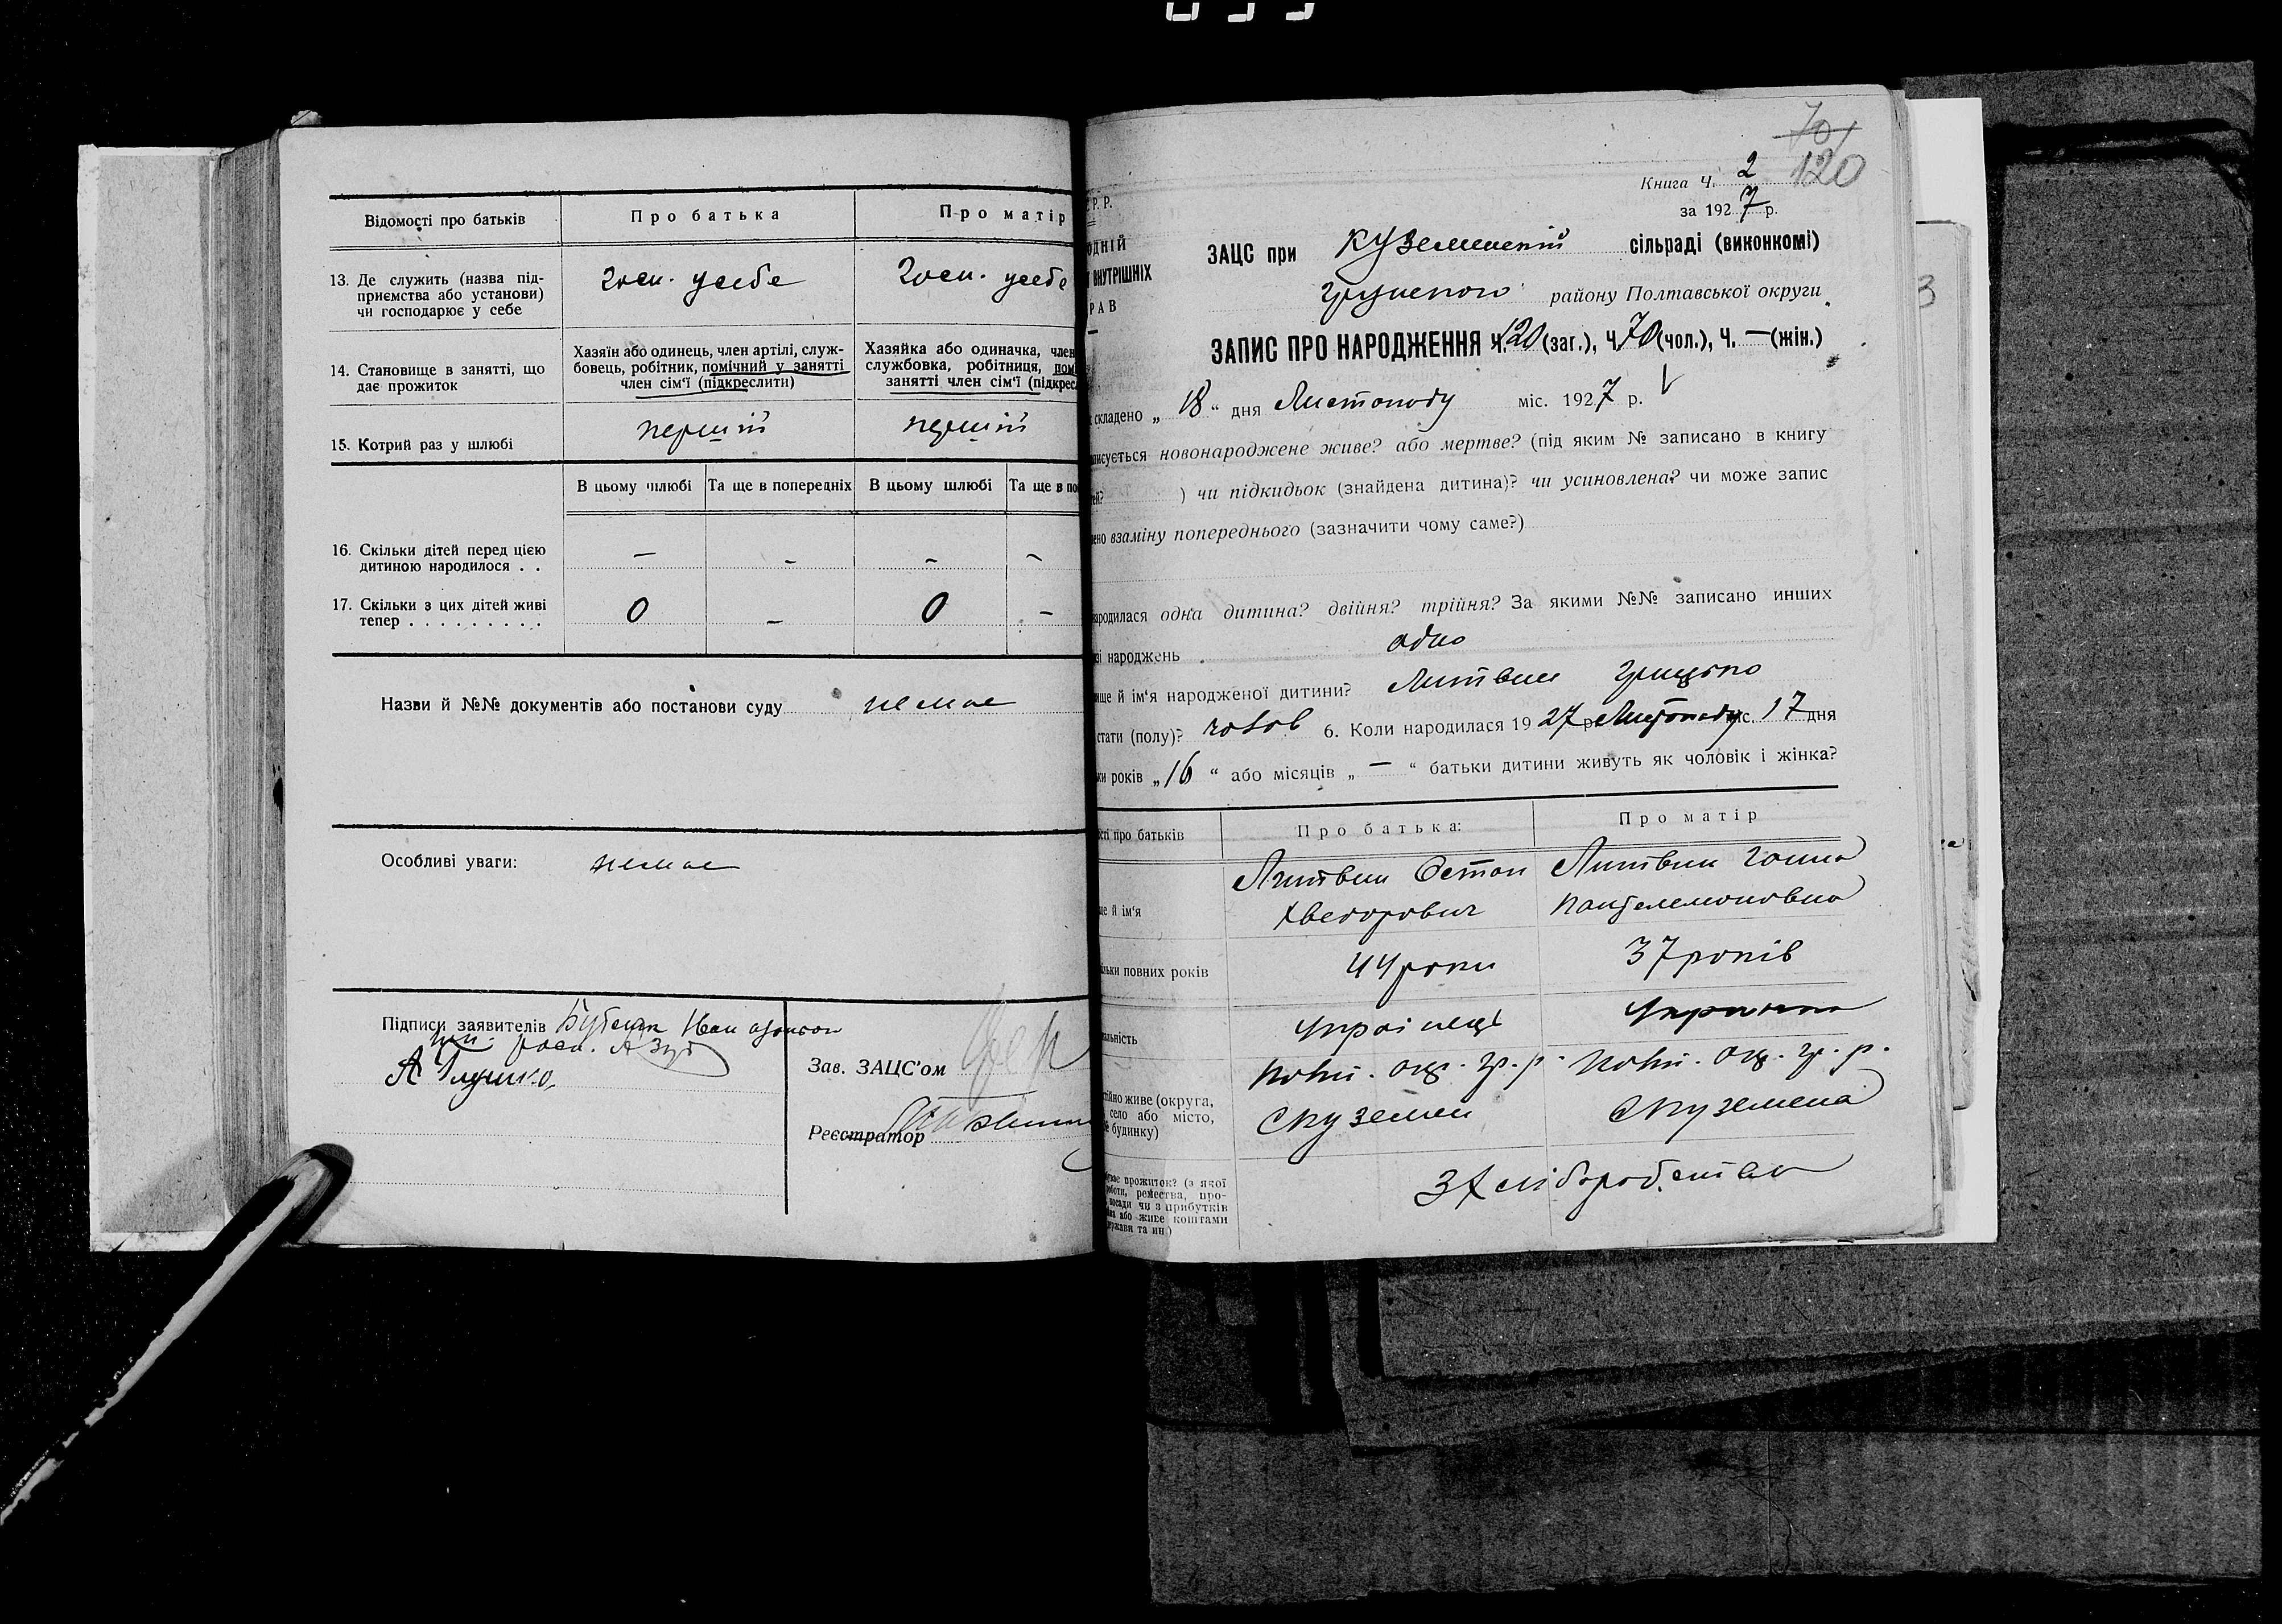 Відомості про батьків
Про батька
Про матір
13. Де служить (назва під-
приємства або установи)
чи господарює у себе
госп. у себе
госп. у себе
14. Становище в занятті, що
дає прожиток
Хазяїн або одинець, член артілі, служ-
бовець, робітник, помічний у занятті
член сім'ї (підкреслити)
Хазяйка або одиначка, член
службовка, робітниця, пом
занятті член сім'ї (підкрес
15. Котрий раз у шлюбі
перший
перший
В цьому шлюбі
Та ще в попередніх
В цьому шлюбі
Та ще в по
16. Скільки дітей перед цією
дитиною народилося . .
—
–
–
–
17. Скільки з цих дітей живі
тепер . . . . . . . . .
0
–
0
–
Назви й №№ документів або постанови суду немає
Особливі уваги: немає
Підписи заявителів Іван
А Глушко
Зав. ЗАЦС'ом
Реєстратор
Р. Р.
ОДНІЙ
ВНУТРІШНІХ
РАВ
70
120
Книга Ч. 2
за 1927 р.
ЗАЦС при Куземенській сільраді (виконкомі)
Грунського району Полтавської округи
ЗАПИС ПРО НАРОДЖЕННЯ Ч. 120 (заг.), Ч. 70 (чол.), Ч. — (жін.)
складено „ 18 “ дня Листопаду міс. 1927 р.
исується новонароджене живе? або мертве? (під яким № записано в книгу
) чи підкидьок (знайдена дитина)? чи усиновлена? чи може запис
ено взаміну попереднього (зазначити чому саме?)
народилася одна дитина? двійня? трійня? За якими №№ записано инших
зі народжень одно
ще й ім'я народженої дитини? Литвин Грицько
стати (полу)? чолов 6. Коли народилася 1927 р Листопаду міс. 17 дня
ки років „ 16 “ або місяців „ — “ батьки дитини живуть як чоловік і жінка?
сті про батьків
Про батька:
Про матір
ще й ім'я
Литвин Остап
Хведорович
Литвин Ганна
Пантелемоновна
льки повних років
44 роки
37 років
альність
Українец
Українка
тійно живе (округа,
село або місто,
будинку)
Полт. окр. гр. р.
С Куземен
Полт. окр. гр. р.
С Куземена
прожиток? (з якої
роботи, ремества, про-
посади чи з прибутків
або живе коштами
держави та ин)
З хліборобства
3